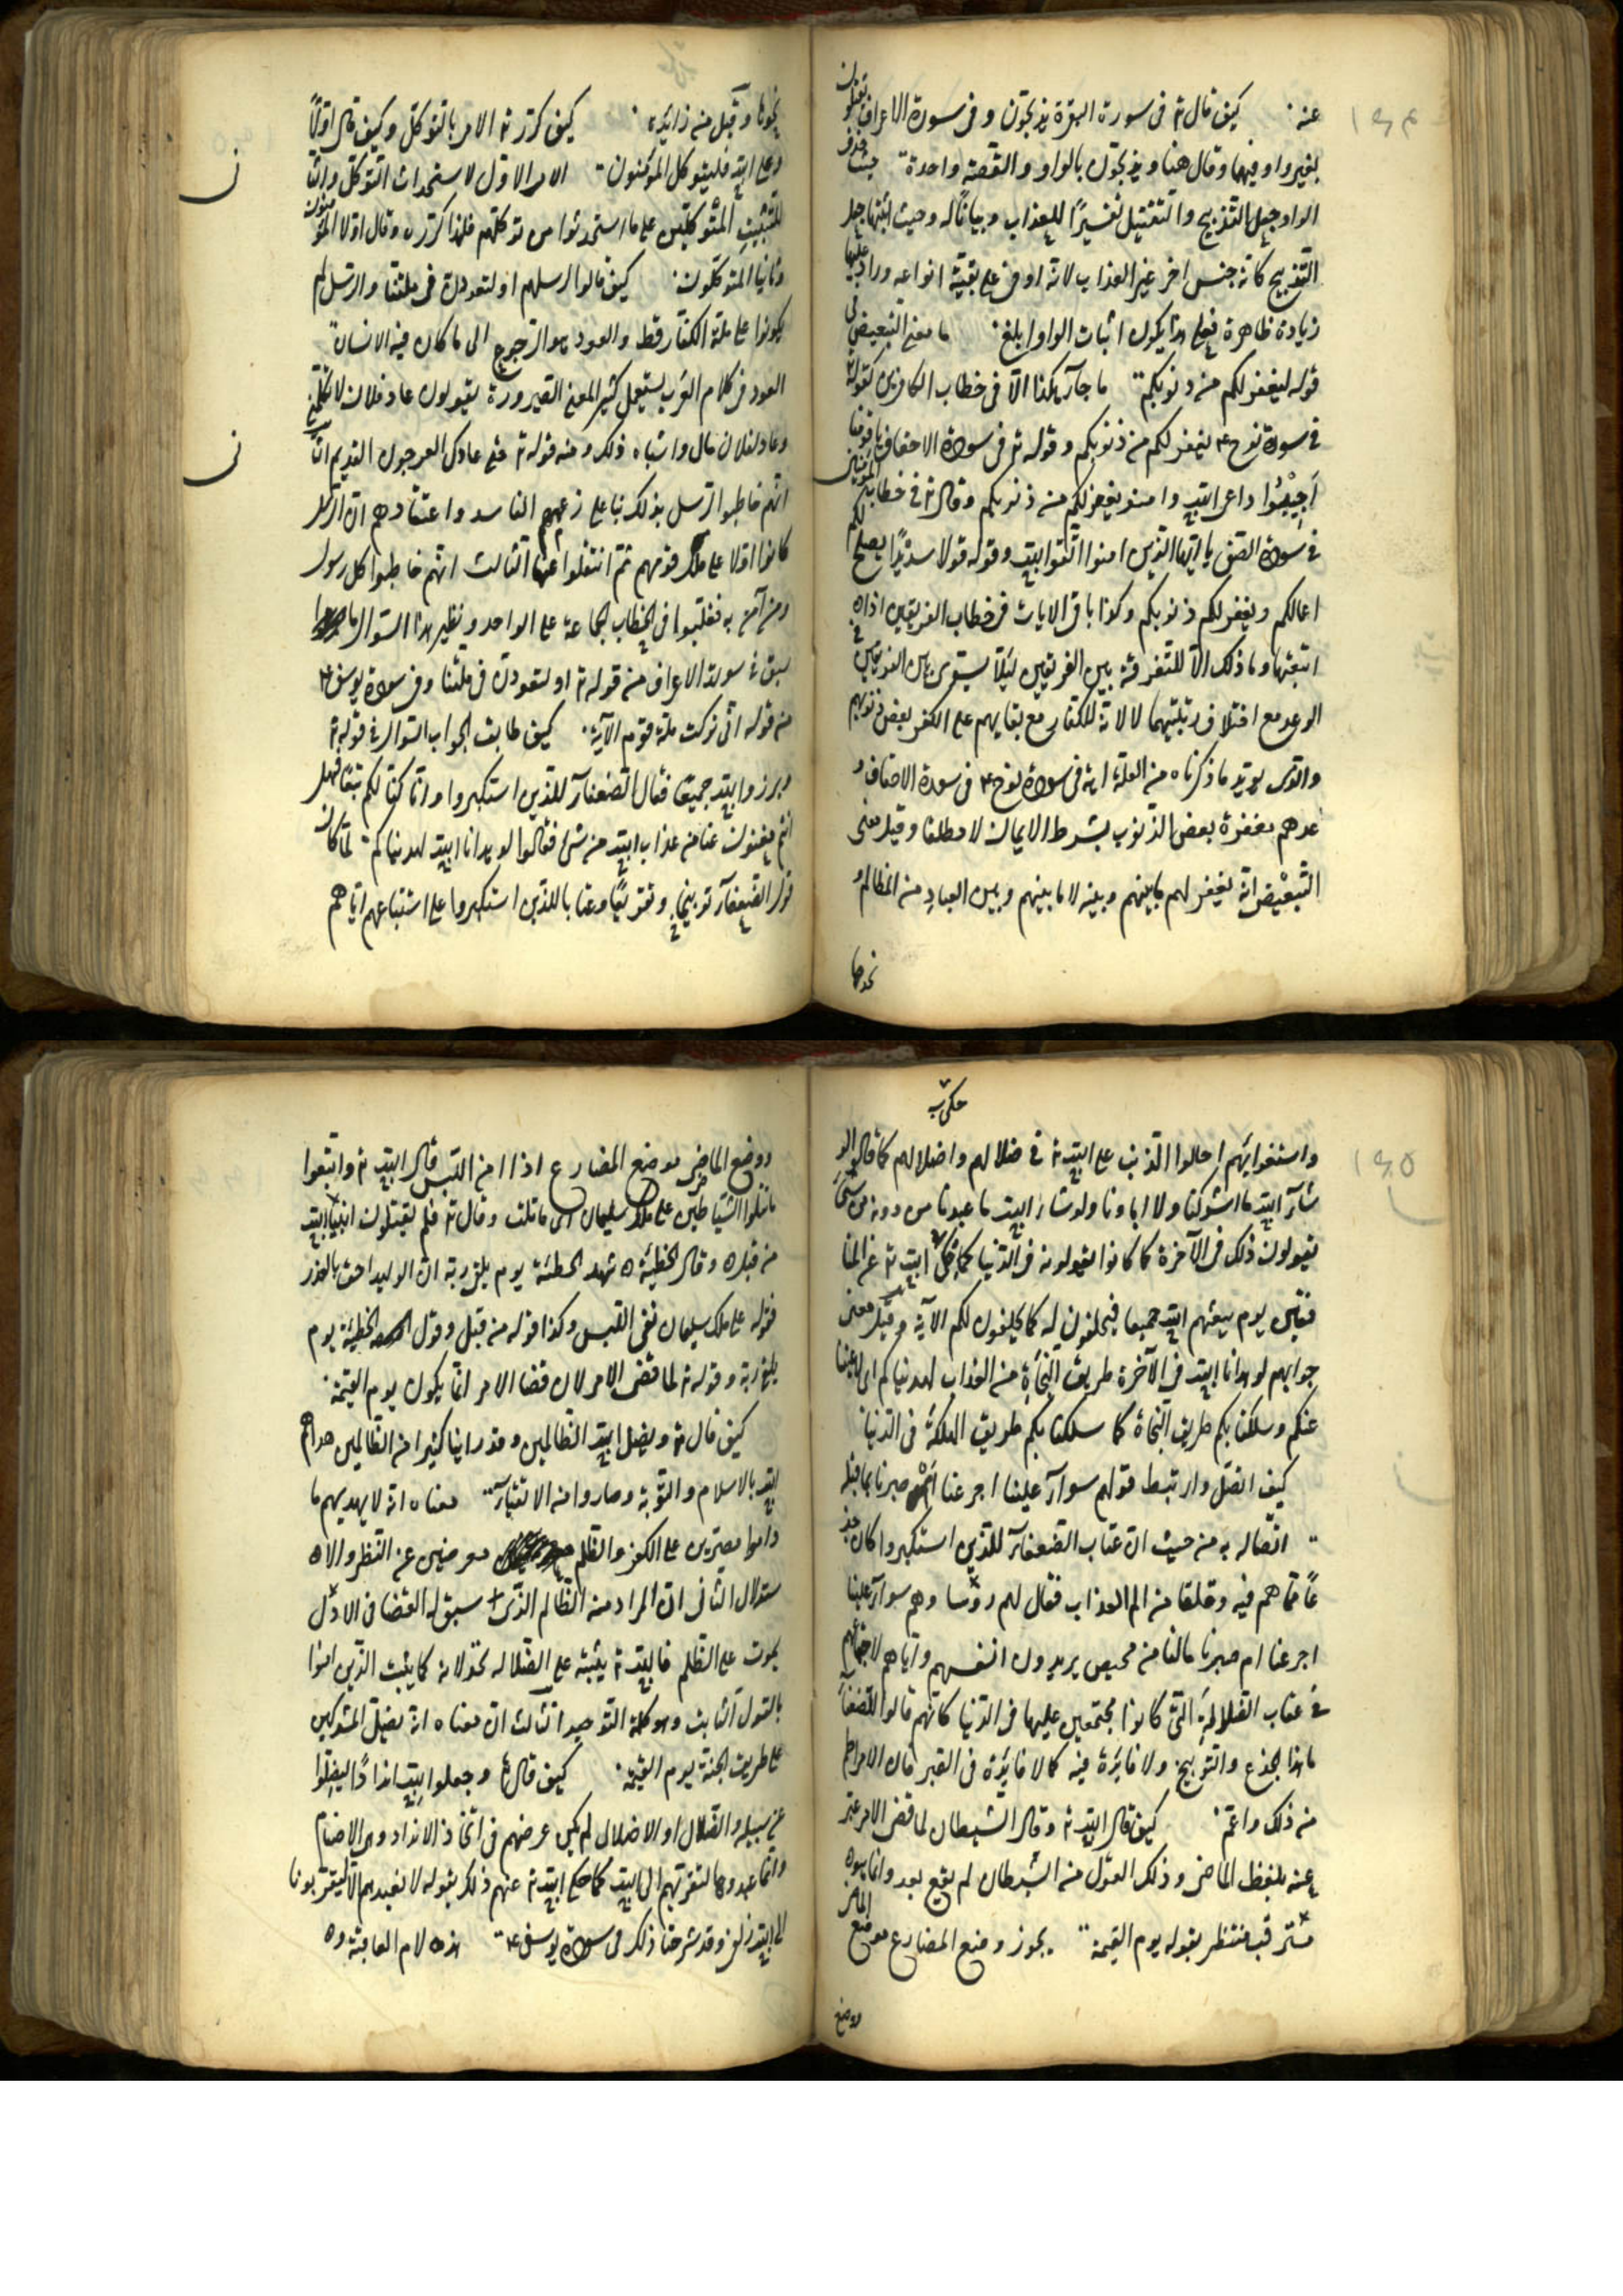 عنه . كيف قال تع فى سورة البقرة يذبحون و فى سورة الاعراف يقتلون
بغير واو فيهما وقال هنا ويذبحون بالواو والقصة واحدة حيث حذف
الواو جعل التذبيح والتقتيل تفسيرًا للعذاب وبيانًا له وحيث اثبتها جعل
التذبيح كانه جنس اخر غير العذاب لانه اوفى على بقية انواعه وزاد عليها
زيادة ظاهرة فعلى هذا يكون اثبات الواو ابلغ . ما معنى التبعيض فى
قوله ليغفر لكم من ذنوبكم ما جاء هكذا الا فى خطاب الكافرين كقوله تع
فى سورة نوح ع يغفر لكم من ذنوبكم وقوله تع فى سورة الاحقاف يا قومنا
اجيبوا داعى الله وامنوا يغفر لكم من ذنوبكم وقال تع فى خطاب المؤمنين
فى سورة الصف يا ايها الذين امنوا اتقوا الله وقوله قولا سديدًا يصلح لكم
اعمالكم ويغفر لكم ذنوبكم وكذا باقى الايات فى خطاب الفريقين اذا
تتبعتها وما ذلك الا للتفرقة بين الفريقين ليلا يستوى بين الفريقين فى
الوعد مع اختلاف رتبتيهما لا لانه للكفار مع بقايهم على الكفر بعض ذنوبهم
والذى يويد ما ذكرناه من العلة انه فى سورة نوح ع فى سورة الاحقاف و
عدهم مغفرة بعض الذنوب بشرط الايمان لا مطلقا وقيل معنى
التبعيض انه يغفر لهم ما بينهم وبينه لا ما بينهم وبين العباد من المظالم و
نحوها
نحوها وقيل من زائدة . كيف كرر تع الامر بالتوكل وكيف قال اولًا
وعلى الله فليتوكل المؤمنون الامر الاول لاستحداث التوكل والثا
لتثبيت المتوكلين على ما استحدثوا من توكلهم فلهذا كرره وقال اولا المؤمنون
وثانيا المتوكلون . كيف قالوا لرسلهم او لتعودن فى ملتنا والرسل لم
يكونوا على ملة الكفار قط والعود هو الرجوع الى ما كان فيه الانسان
العود فى كلام العرب يستعمل كثيرا بمعنى الصيرورة يقولون عاد فلان لا يكلمنى
وعاد لفلان مال واشباه ذلك ومنه قوله تع حتى عاد كالعرجون القديم الثا
انهم خاطبوا الرسل بذلك بنا على زعمهم الفاسد واعتقادهم ان الرسل
كانوا اولا على ملة قومهم ثم انتقلوا عنها الثالث انهم خاطبوا كل رسول
ومن آمن به فغلبوا فى الخطاب الجماعة على الواحد ونظير هذا السوال ما
سبق فى سورة الاعراف من قوله تع او لتعودن فى ملتنا وفى سورة يوسف ع
من قوله انى تركت ملة قوم الآية . كيف طابق الجواب السوال فى قوله تع
وبرزوا لله جميعا فقال الضعفاء للذين استكبروا انا كنا لكم تبعًا فهل
انتم مغنون عنا من عذاب الله من شئ فقالوا لو هدانا الله لهديناكم لما كان
قول الضعفاء توبيخا وتقريعًا وعتابا للذين استكبروا على استتباعهم اياهم
حكى به
واستغوايهم احالوا الذنب على الله تع فى ضلالهم واضلالهم كما قالوا لو
شاء الله ما اشركنا ولا اباؤنا ولو شاء الله ما عبدنا من دونه من شئ
يقولون ذلك فى الآخرة كما كانوا يقولونه فى الدنيا كما حكى الله تع عن المنا
فقين يوم يبعثهم الله جميعا فيحلفون له كما يحلفون لكم الآية وقيل معنى
جوابهم لو هدانا الله فى الآخرة طريق النجاة من العذاب لهديناكم اى لاغنينا
عنكم وسلكنا بكم طريق النجاة كما سلكنا بكم طريق الهلكة فى الدنيا
كيف اتصل وارتبط قولهم سواء علينا اجزعنا ام صبرنا بما قبله
اتصاله به من حيث ان عتاب الضعفاء للذين استكبروا كان جز
عًا مما هم فيه وقلقا من الم العذاب فقال لهم رؤسا وهم سواء علينا
اجزعنا ام صبرنا ما لنا من محيص يريدون انفسهم واياهم لاجتماعهم
فى عتاب الضلالة التى كانوا مجتمعين عليها فى الدنيا كانهم قالوا للضعفا
ما هذا الجزع والتوبيخ ولا فايدة فيه كما لا فايدة فى الصبر فان الامر اطم
من ذلك واعم . كيف قال الله تع وقال الشيطان لما قضى الامر عبر
عنه بلفظ الماضى وذلك القول من الشيطان لم يقع بعد وانما هو
مترقب منتظر بقوله يوم القيمة يجوز وضع المضارع موضع الماضى
ووضع
ووضع الماضى موضع المضارع اذا امن اللبس قال الله تع واتبعوا
ما تتلوا الشياطين على ملك سليمان اى ما تلت وقال تع فلم تقتلون انبياء الله
من قبل وقال الحطيئة شهد الحطئة يوم يلقى ربه ان الوليد احق بالعذر
فقوله على ملك سليمان نفى اللبس وكذا قوله من قبل وقول الحطيئة يوم
يلقى ربه وقوله تع لما قضى الامر لان قضا الامر انما يكون يوم القيمة .
كيف قال تع ويضل الله الظالمين وقد راينا كثيرا من الظالمين هداهم
الله بالاسلام والتوبة وصاروا من الاتقياء معناه انه لا يهديهم ما
داموا مصرين على الكفر والظلم معرضين عن النظر والا
ستدلال الثانى ان المراد منه الظالم الذى سبق له القضا فى الازل
يموت على الظلم فالله تع يثبته على الضلالة لخذلانه كما يثبت الذين امنوا
بالقول الثابت وهو كلمة التوحيد الثالث ان معناه انه يضل المشركين
عن طريق الجنة يوم القيمة . كيف قال تع وجعلوا لله اندادًا ليضلوا
عن سبيله والضلال او الاضلال لم يكن غرضهم فى اتخاذ الانداد وهى الاصنام
وانما عبدوها لتقربهم الى الله كما حكى الله تع عنهم ذلك بقوله ما نعبدهم الا ليقربونا
الى الله زلفى وقد شرحنا ذلك فى سورة يوسف ع هذه لام العاقبة و